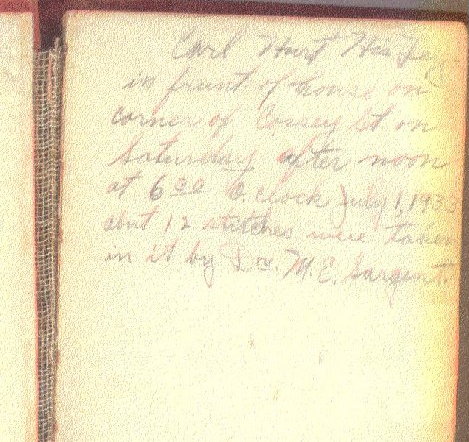 Carl Hurt His Leg
in front of house on
corner of St on
Saturday after noon
at 6 00 O.clock July 1, 1933
abut 12 stitches were taken
in it by Dr. M.E. Sargent.